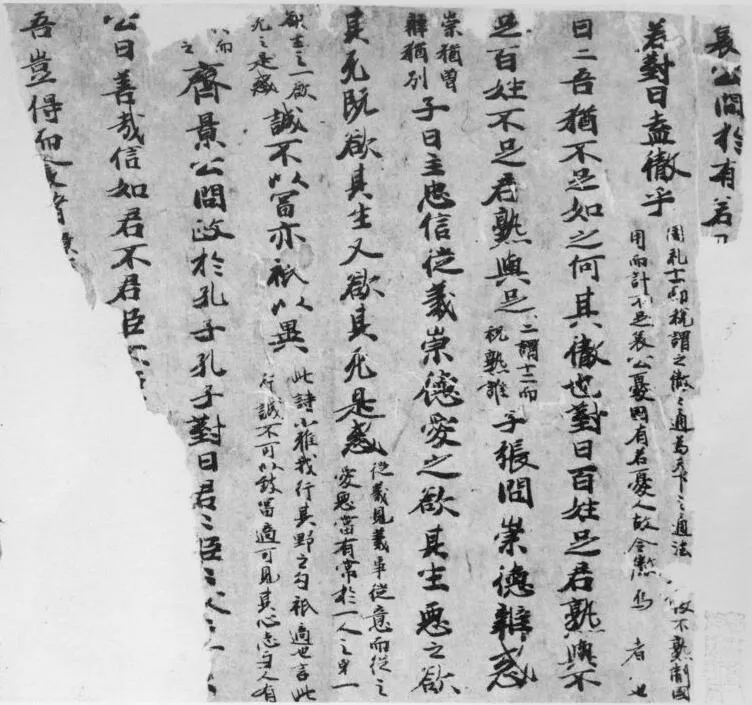 哀公問於有若
若對曰盍徹乎
周礼十一而税謂之徹〻通為天下之通法
用而計不足哀公憂因有若憂人故令徹焉 者也
曰二吾猶不足如之何其徹也對曰百姓足君熟與不
足百姓不足君熟與足 二謂十二而 税熟誰 子張問崇德辯惑
崇猶曾 辯猶別 子曰主忠信從義崇德愛之欲其生惡之欲
其死既欲其生又欲其死是惑 從義見義事從意而從之 愛惡當有常於一人之身一
欲生之一欲 死之是惑 誠不以富亦祇以異 此詩小雅我行其野之句祇適也言此 行誠不可以致富適可見其心志与人有
齊景公問政於孔子孔子對曰君〻臣〻父〻
公曰善哉信如君不君臣不
吾豈得而食諸